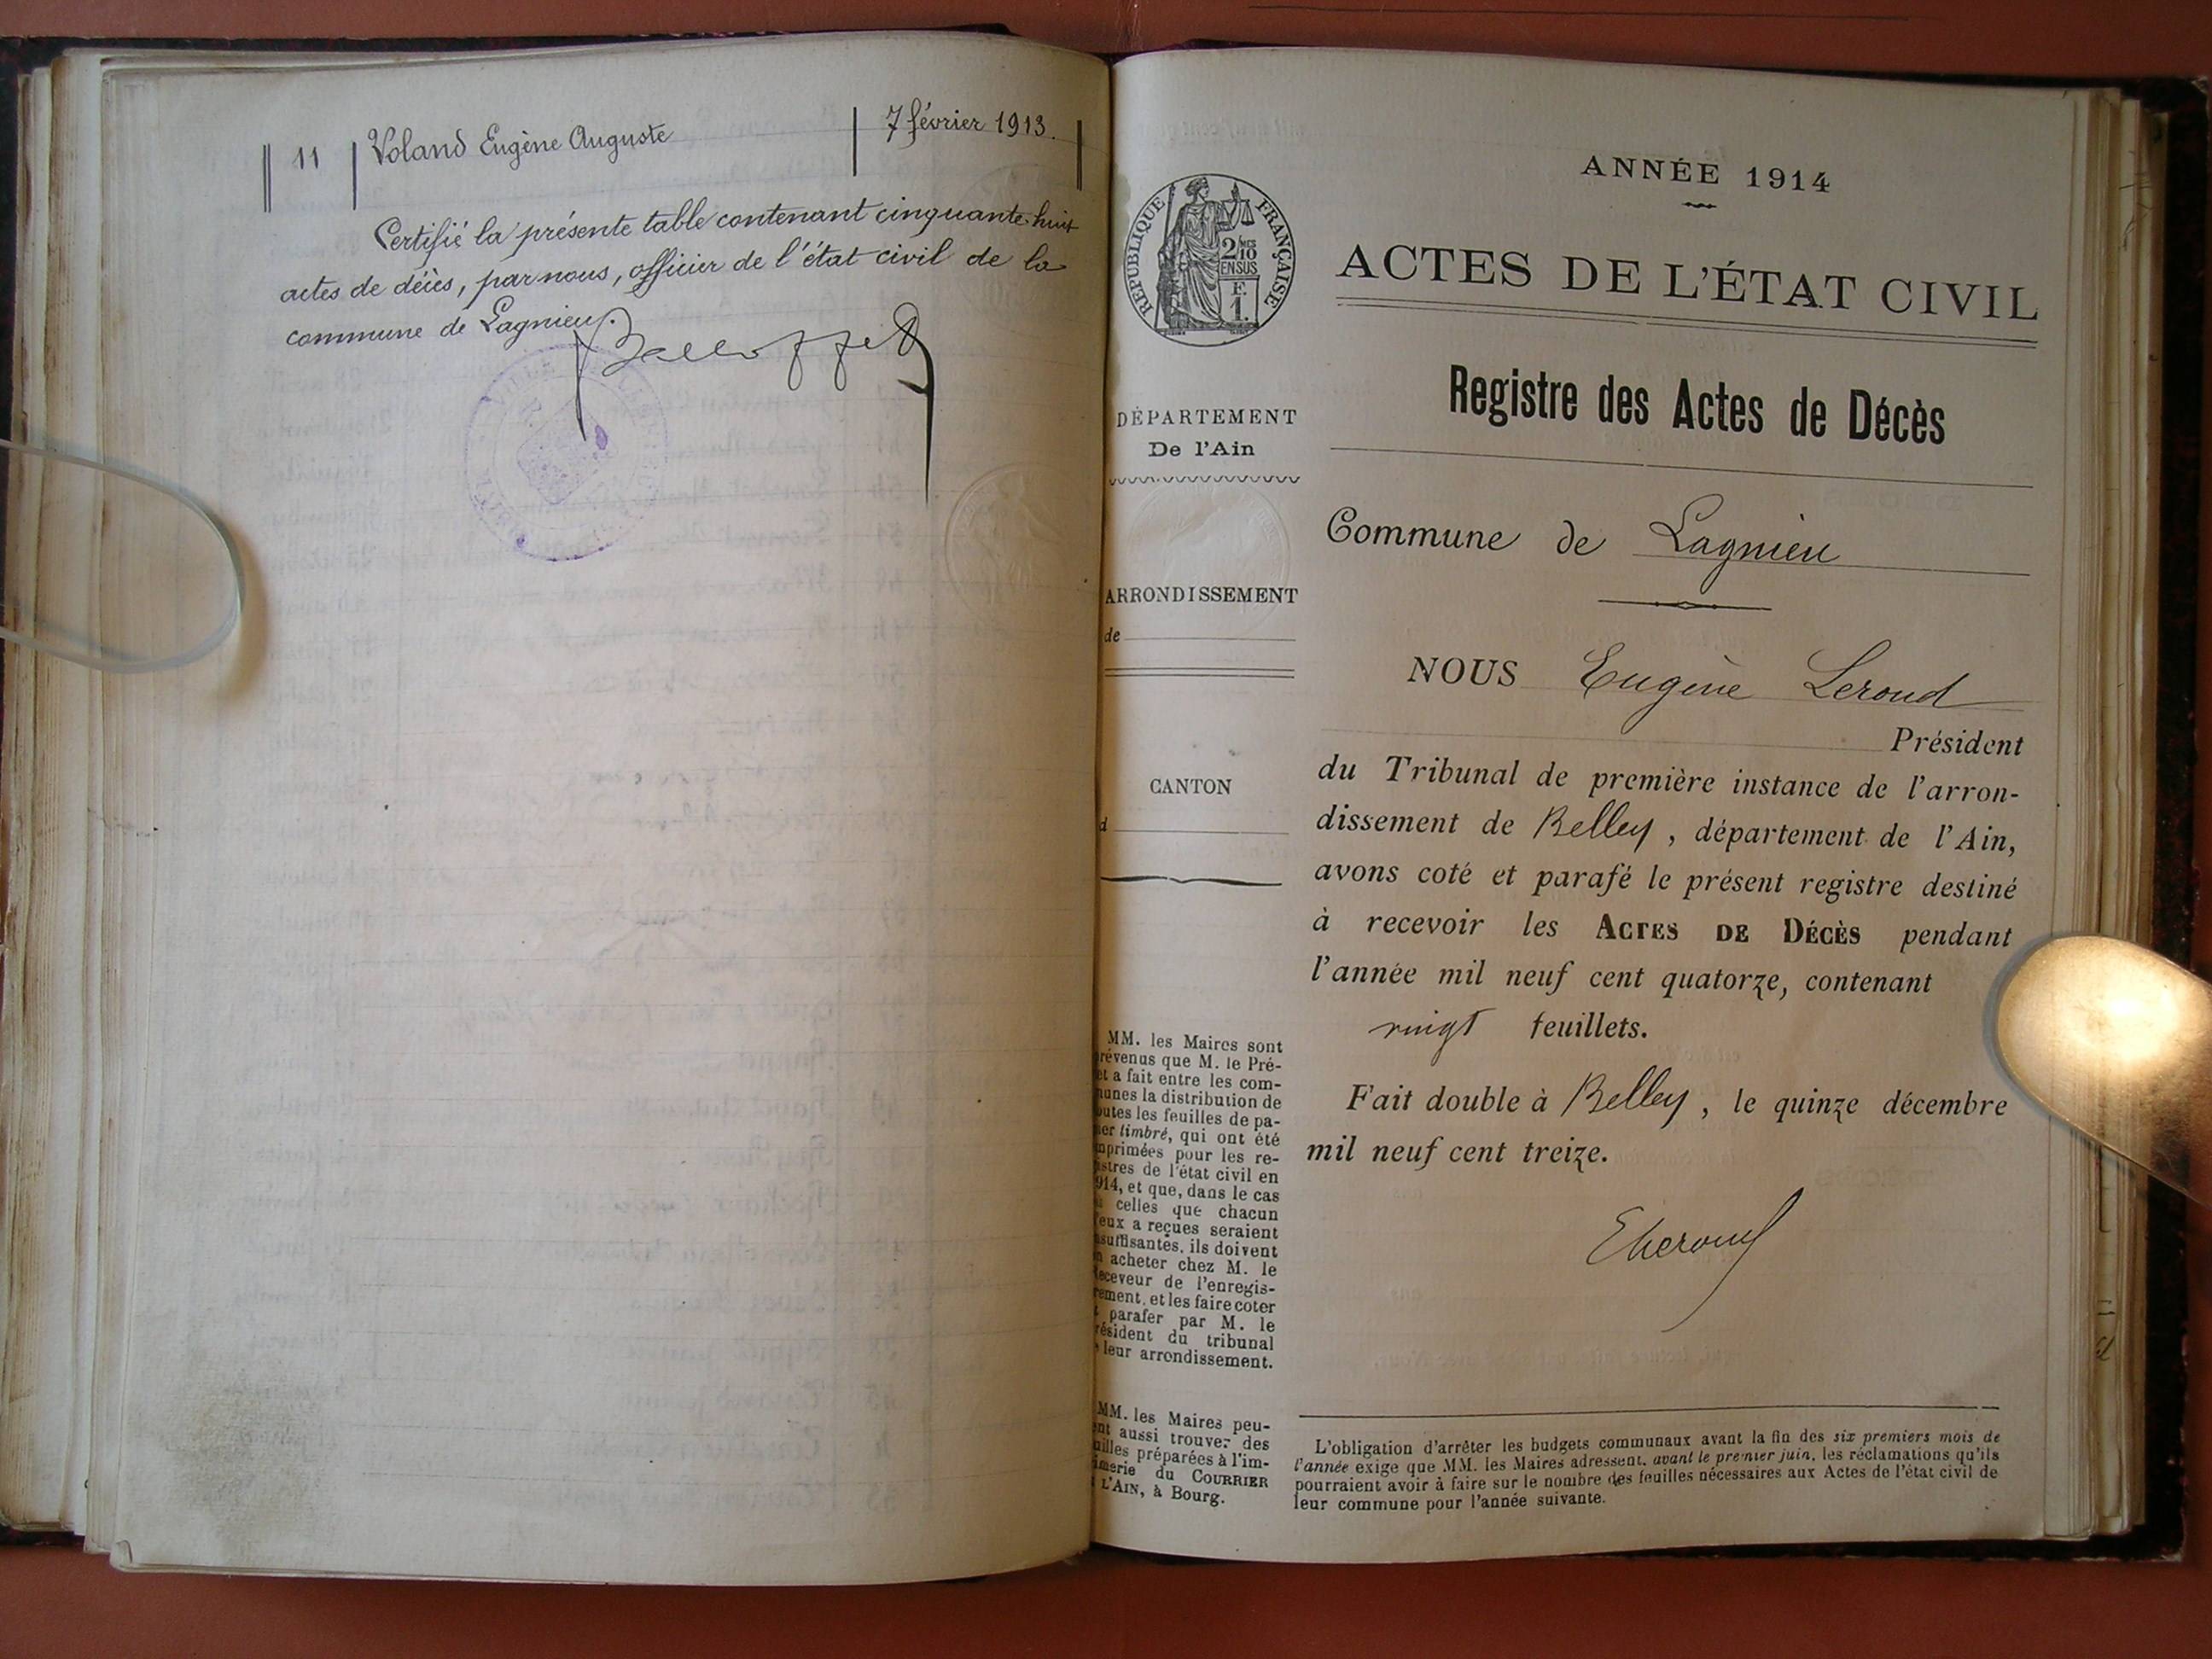 11 Voland Eugène Auguste 7 février 1913.
Certifié la présente table contenant cinquante-huit
actes de décès, par nous, officier de l'état civil de la
commune de Lagnieu.
RÉPUBLIQUE FRANÇAISE
2/10
EN SUS
F.
1.
DÉPARTEMENT
De l'Ain
ARRONDISSEMENT
de
CANTON
d
MM. les Maires sont
révenus que M. le Pré-
et a fait entre les com-
unes la distribution de
outes les feuilles de pa-
ier timbré, qui ont été
mprimées pour les re-
istres de l'état civil en
914, et que, dans le cas
celles que chacun
'eux a reçues seraient
suffisantes, ils doivent
n acheter chez M. le
eceveur de l'enregis-
rement, et les faire coter
t parafer par M. le
résident du tribunal
e leur arrondissement.
MM. les Maires peu-
ent aussi trouver des
uilles préparées à l'im-
imerie du COURRIER
L'AIN, à Bourg.
ANNÉE 1914
ACTES DE L'ÉTAT CIVIL
Registre des Actes de Décès
Commune de Lagnieu
NOUS Eugène Leroud
Président
du Tribunal de première instance de l'arron-
dissement de Belley, département de l'Ain,
avons coté et parafé le présent registre destiné
à recevoir les ACTES DE DÉCÈS pendant
l'année mil neuf cent quatorze, contenant
vingt feuillets.
Fait double à Belley, le quinze décembre
mil neuf cent treize.
ELeroud
L'obligation d'arrêter les budgets communaux avant la fin des six premiers mois de
l'année exige que MM. les Maires adressent, avant le premier juin, les réclamations qu'ils
pourraient avoir à faire sur le nombre des feuilles nécessaires aux Actes de l'état civil de
leur commune pour l'année suivante.